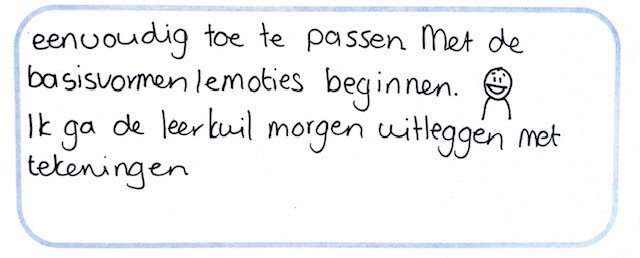 eenvoudig toe te passen Met de
basisvormen/emoties beginnen.
Ik ga de leerkuil morgen uitleggen met
tekeningen